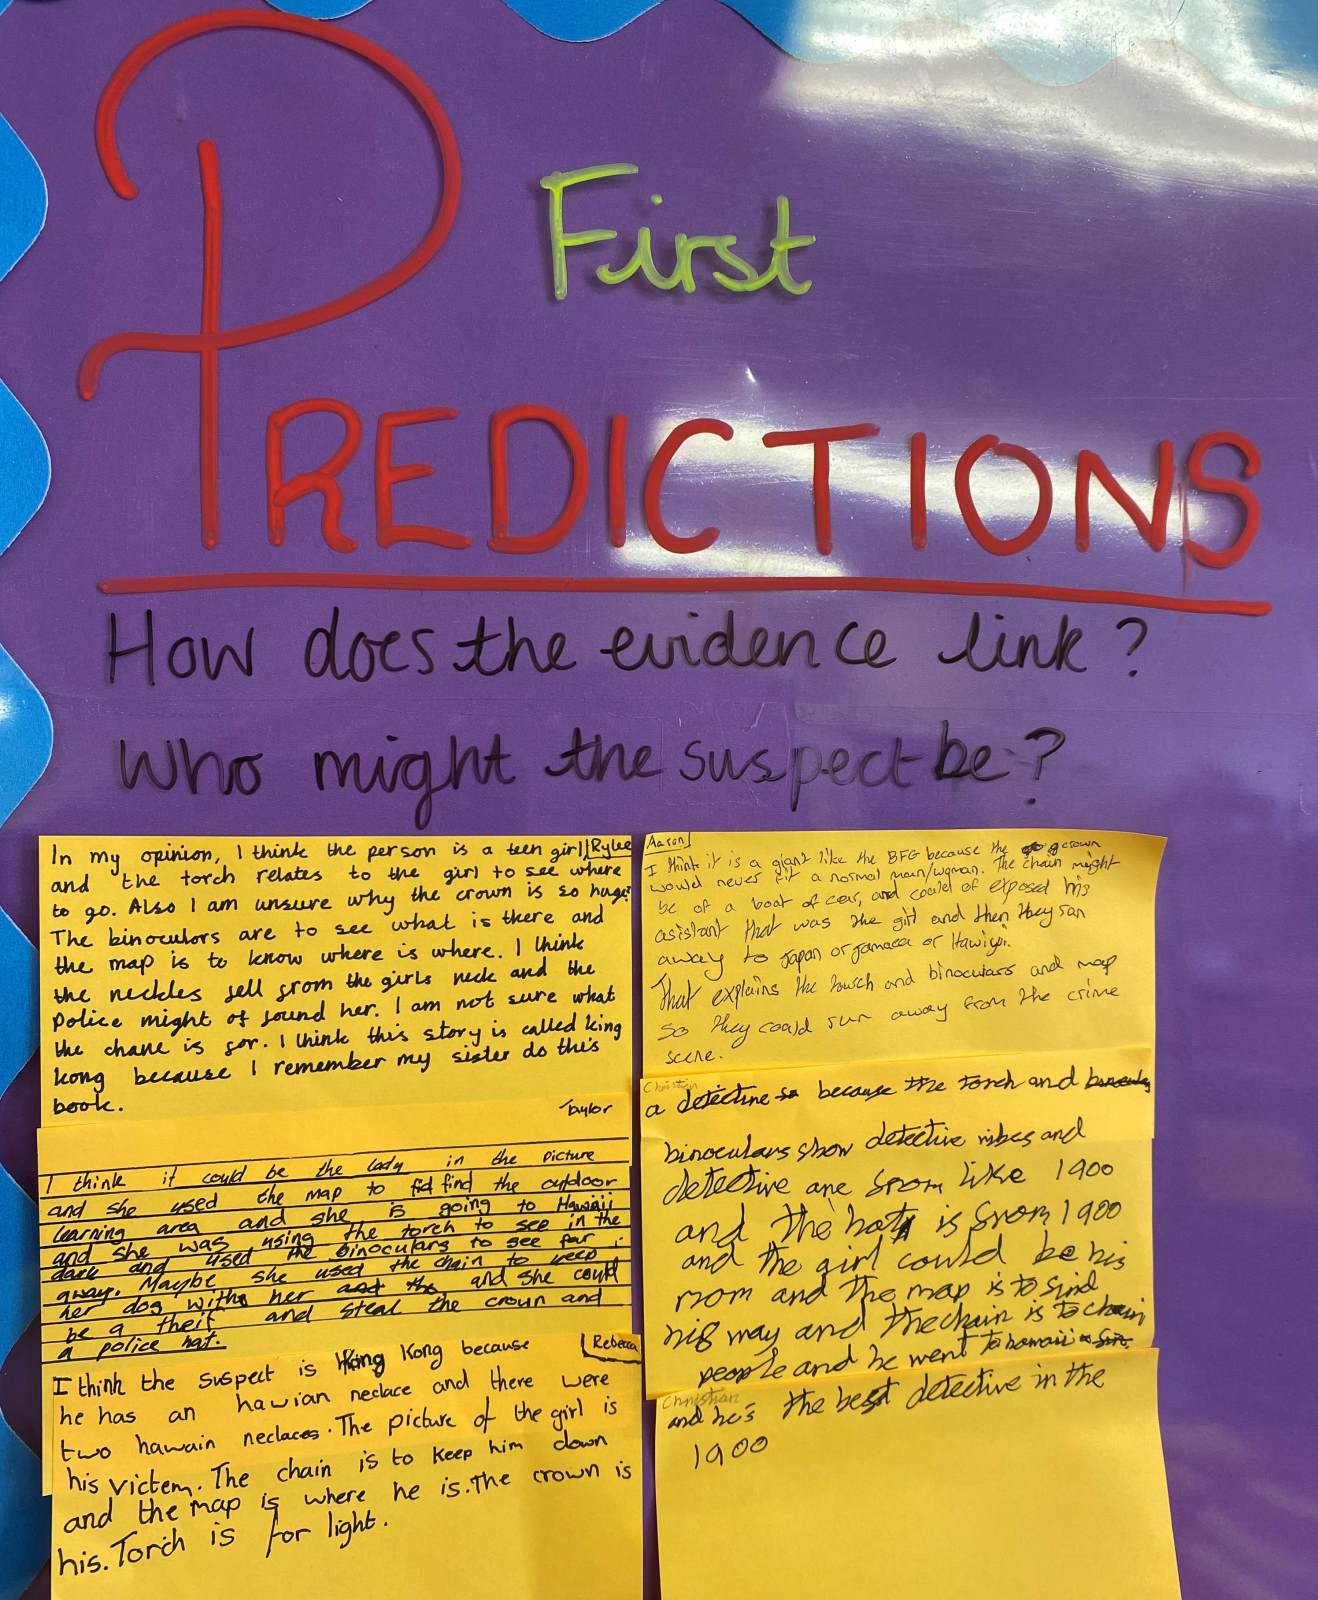 First
PREDICTIONS
How does the evidence link?
Who might the suspect be?
In my opinion, I think the person is a teen girl Rylee
and the torch relates to the girl to see where
to go. Also I am unsure why the crown is so huge?
The binoculors are to see what is there and
the map is to know where is where. I think
the neckles fell from the girls neck and the
Police might of found her. I am not sure what
the chane is for. I think this story is called king
kong because I remember my sister do this
book.
Taylor
I think it could be the lady in the picture
and she used the map to find the outdoor
learning area and she is going to Hawaii
and she was using the torch to see in the
dark and used the binoculars to see far
away. Maybe she used the chain to keep
her dog with her and she could
be a theif and steal the crown and
a police hat.
Rebecca
I think the suspect is King Kong because
he has an hawian neclace and there were
two hawain neclaces. The picture of the girl is
his victem. The chain is to keep him down
and the map is where he is. The crown is
his. Torch is for light.
Aaron
I think it is a giant like the BFG because the crown
would never fit a normal man/woman. The chain might
be of a boat of cear, and coould of exposed his
asistant that was the girl and then they ran
away to Japan or Jamaca or Hawiyi.
That explains the tourch and binoculars and map
so they coald run away from the crime
scene.
Christian
a detective because the torch and
binoculars show detective vibes and
detective are from like 1900
and the hat is from 1900
and the girl could be his
mom and the map is to find
his way and the chain is to chain
people and he went to hawaii
Christian
and he's the best detective in the
1900